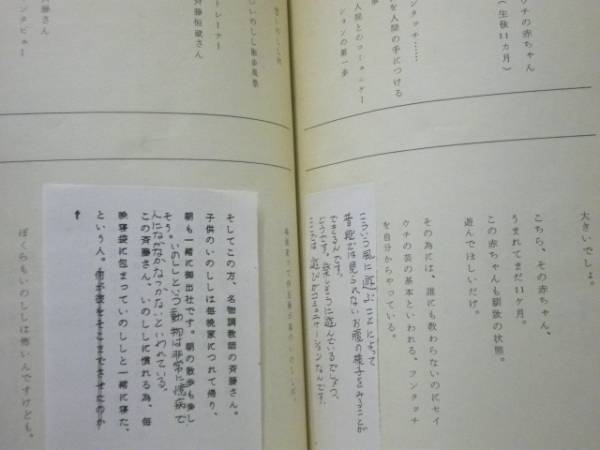 ウチの赤ちゃん
(生後11カ月)
ンタッチ……
を人間の手につける
人間とのコミュニケー
ションの第一歩
大きいでしょ。
こちら、その赤ちゃん、
うまれてまだ11ケ月。
この赤ちゃんも馴致の状態。
遊んでほしいだけ。
その為には、誰にも教わらないのにセイ
ウチの芸の基本といわれる、フンタッチ
を自分からやっている。
こういう風に遊ぶことによって
普段では見られないお腹の様子をみることが
できるんです。
どうです。楽しそうに遊んでいるでしょう。
ここでは遊びがコミュニケーションなんです。
いのしし散歩風景
トレーナー
斉藤恒蔵さん
斉藤さん
ンタビュー
そしてこの方、名物調教師の斉藤さん。
子供のいのししは毎晩家につれて帰り、
朝も一緒に御出社です。朝の散歩も楽し
そう。いのししという動物は非常に憶病で
人になかなかなつかないといわれている。
この斉藤さん、いのししに慣れる為、毎
晩寝袋に包まっていのししと一緒に寝た。
という人。何が彼をそこまでさせたのか
ぼくらもいのししは怖いんですけども。